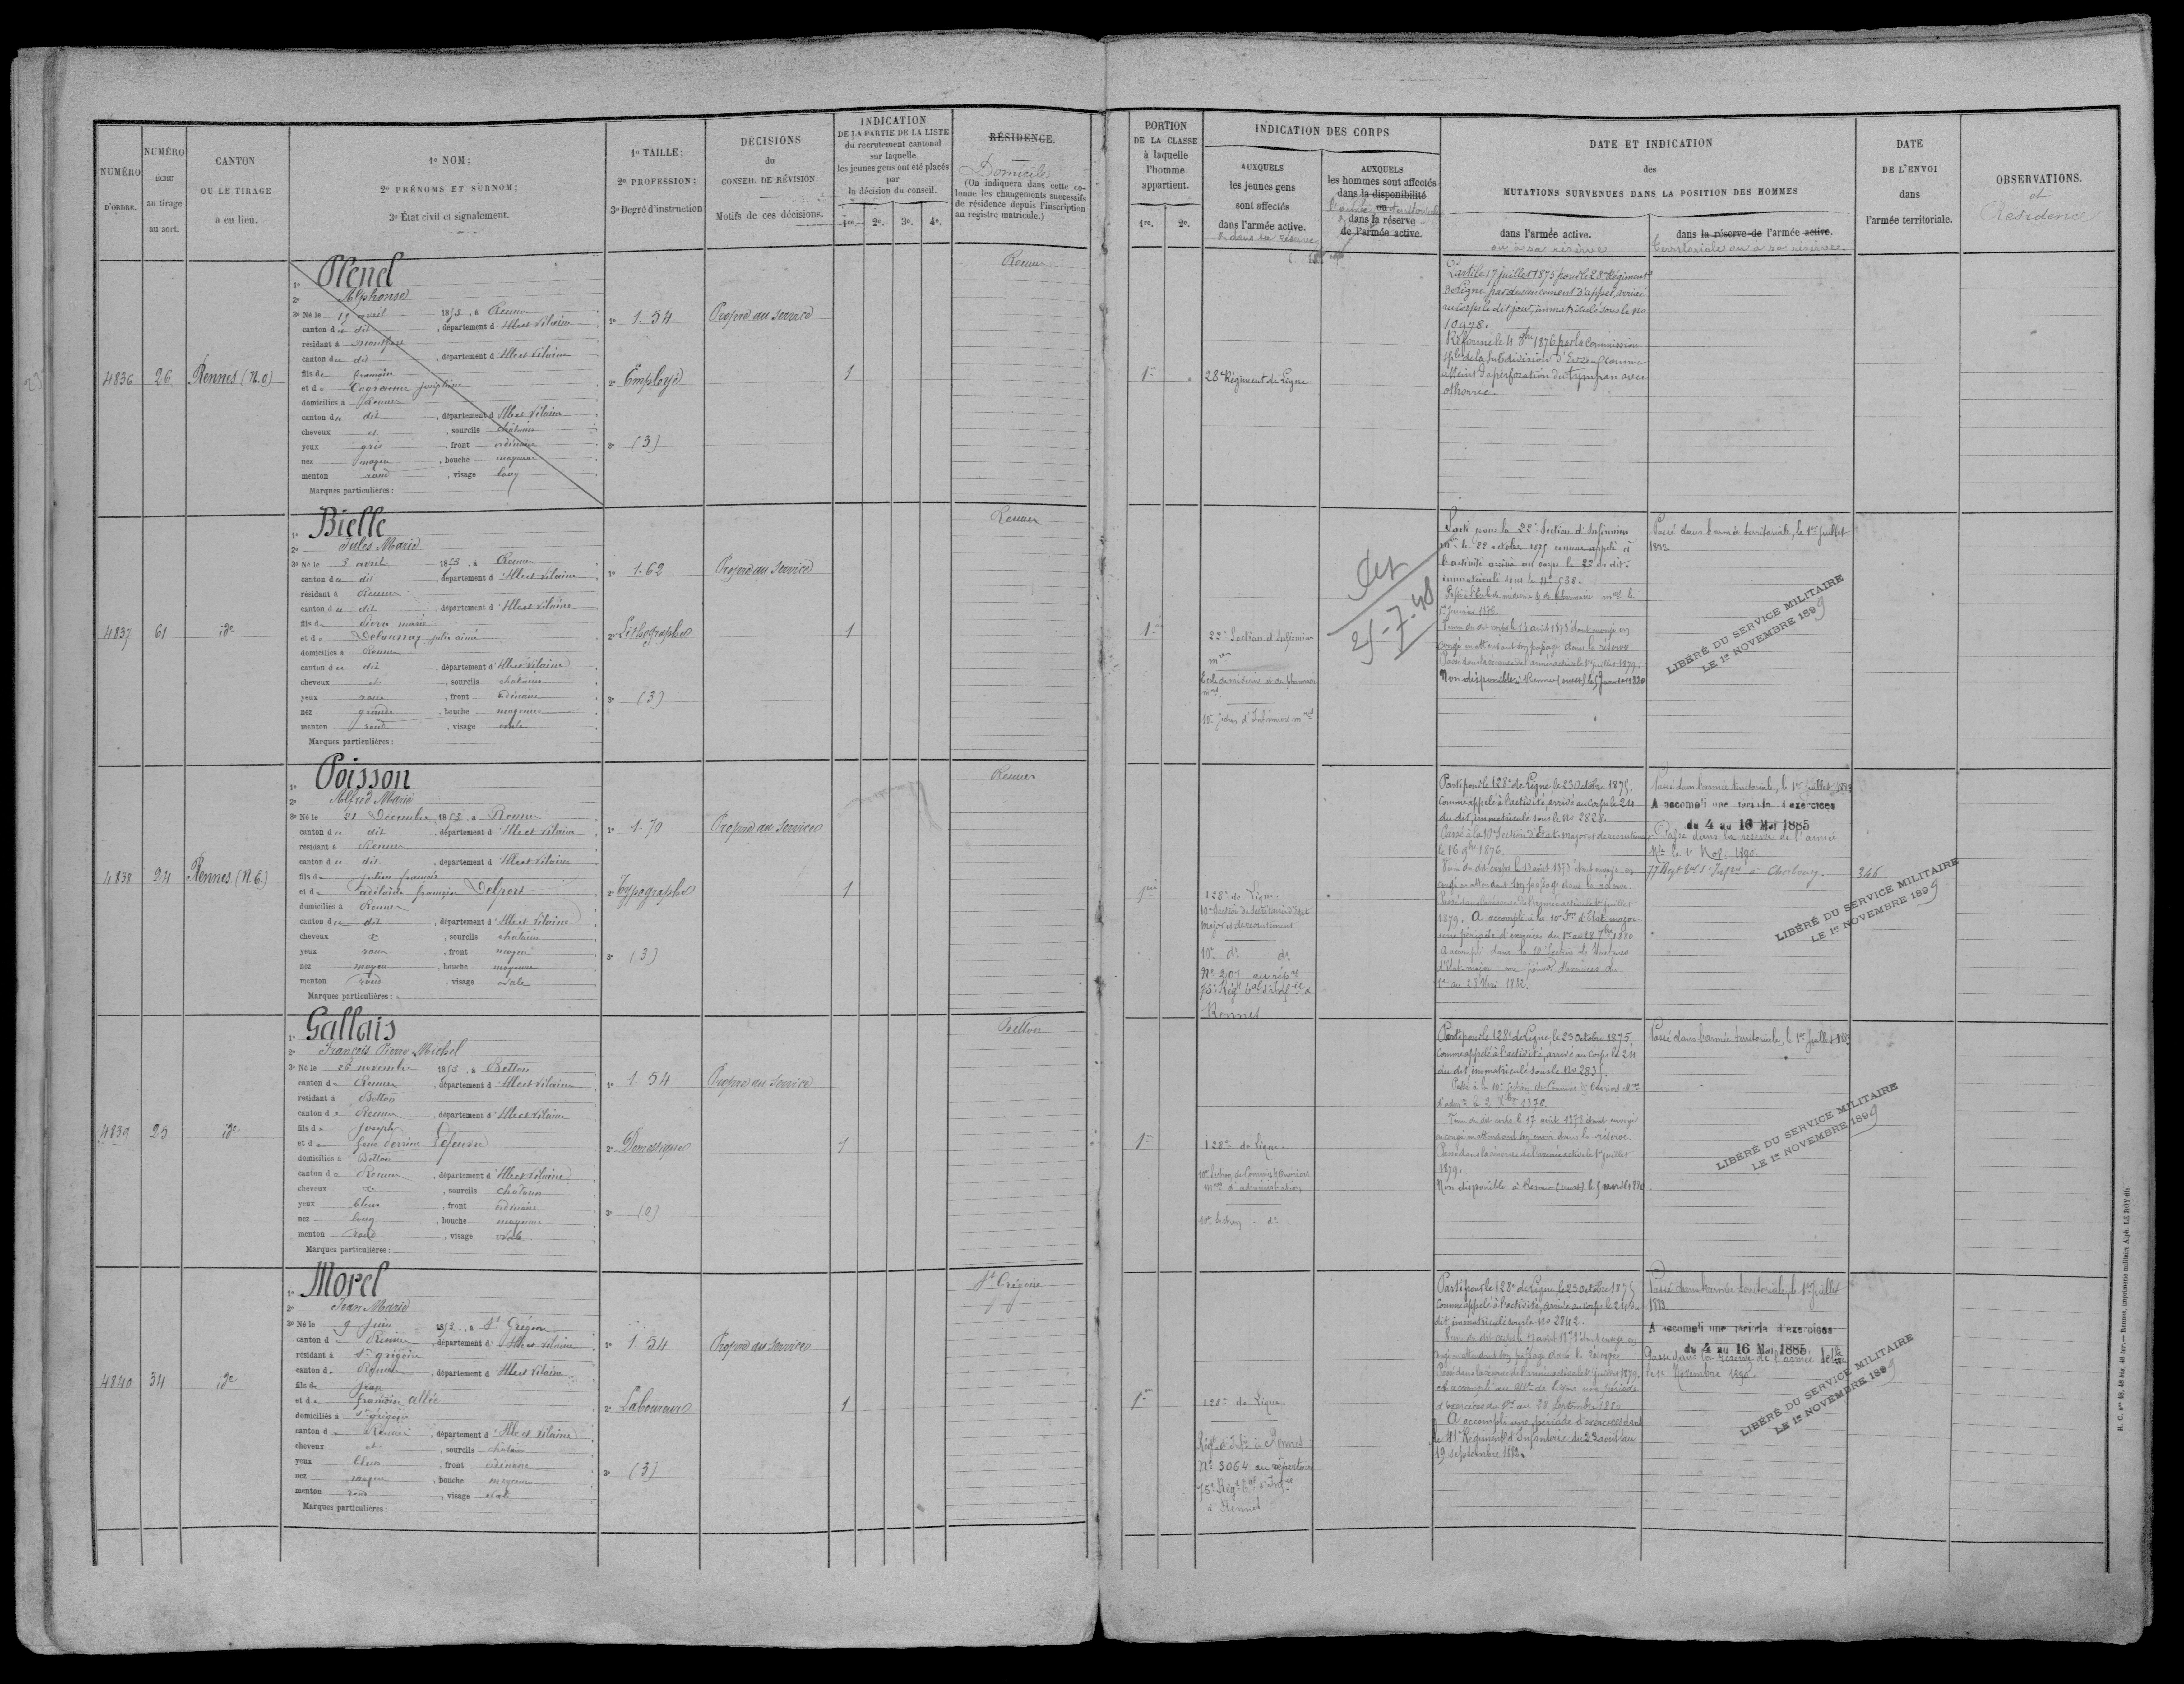 NUMÉRO
D'ORDRE.
NUMÉRO
ÉCHU
au tirage
au sort.
CANTON
OU LE TIRAGE
a eu lieu.
1º NOM;
2º PRÉNOMS ET SURNOM;
3º État civil et signalement.
1º TAILLE;
2º PROFESSION;
3º Degré d'instruction
DÉCISIONS
du
CONSEIL DE RÉVISION.
Motifs de ces décisions.
INDICATION
DE LA PARTIE DE LA LISTE
du recrutement cantonal
sur laquelle
les jeunes gens ont été placés
par
la décision du conseil.
1re. 2e. 3e. 4e.
RÉSIDENCE.
Domicile
(On indiquera dans cette co-
lonne les changements successifs
de résidence depuis l'inscription
au registre matricule.)
PORTION
DE LA CLASSE
à laquelle
l'homme
appartient.
1re. 2e.
INDICATION DES CORPS
AUXQUELS
les jeunes gens
sont affectés
dans l'armée active.
& dans sa réserve
AUXQUELS
les hommes sont affectés
dans la disponibilité
ou
dans la réserve
de l'armée active.
DATE ET INDICATION
des
MUTATIONS SURVENUES DANS LA POSITION DES HOMMES
dans l'armée active.
ou à sa réserve
dans la réserve de l'armée active.
territoriale ou à sa réserve.
DATE
DE L'ENVOI
dans
l'armée territoriale.
OBSERVATIONS.
et
Résidence
4836
26
Rennes (N.O)
1º Plenel
2º Alphonse
3º Né le 19 avril 1855, à Rennes
canton du dit, département d'Ille et Vilaine
résidant à
canton du dit, département d'Ille et Vilaine
fils de françois
et de Cogranne Joséphine
domiciliés à Rennes
canton du dit, département d'Ille et Vilaine
cheveux et, sourcils châtains
yeux gris, front ordinaire
nez moyen, bouche moyenne
menton rond, visage long
Marques particulières :
1º 1.54
2º Employé
3º (3)
Propre au service
1
Rennes
1re
28e Régiment de Ligne
Parti le 17 juillet 1875 pour le 28e Régiment
de ligne, par devancement d'appel, arrivé
au corps le dit jour, immatriculé sous le No
10978.
Réformé le 4 8bre 1876 par la Commission
sple de la Subdivision d'Evreux comme
atteint de perforation du tympan avec
othorrée.
4837
61
ide
1º Bielle
2º Jules Marie
3º Né le 5 avril 1855, à Rennes
canton du dit, département d'Ille et Vilaine
résidant à Rennes
canton du dit, département d'Ille et Vilaine
fils de Pierre marie
et de Delaunay julie aimée
domiciliés à Rennes
canton du dit, département d'Ille et Vilaine
cheveux et, sourcils chatains
yeux roux, front ordinaire
nez grand, bouche moyenne
menton rond, visage ovale
Marques particulières :
1º 1.62
2º Lithographe
3º (3)
Propre au service
1
Rennes
1re
22e Section d'Infirmiers
mres
Ecole de médecine et de pharmacie
mres
10e Section d'Infirmiers mres
25-7-48
Parti pour la 22e Section d'Infirmiers
mres le 22 octobre 1875 comme appelé à
l'activité arrivé au corps le 22 du dit.
immatriculé sous le No 538.
Passé à l'école de médecine & de pharmacie mre le
1er Janvier 1876.
Venu du dit corps le 13 août 1878 étant envoyé en
congé en attendant son passage dans la réserve
Passé dans la réserve de l'armée active le 1er juillet 1879.
Non disponible à Rennes (ouest) le 5 janvier 1880
Passé dans l'armée territoriale, le 1er Juillet
LIBÉRÉ DU SERVICE MILITAIRE
LE 1er NOVEMBRE 1899
4838
24
Rennes (N.E.)
1º Poisson
2º Alfred Marie
3º Né le 21 Décembre 1855, à Rennes
canton du dit, département d'Ille et Vilaine
résidant à Rennes
canton du dit, département d'Ille et Vilaine
fils de julien françois
et de adélaïde françoise Delport
domiciliés à Rennes
canton du dit, département d'Ille et Vilaine
cheveux &, sourcils châtains
yeux roux, front moyen
nez moyen, bouche moyenne
menton rond, visage ovale
Marques particulières :
1º 1.70
2º Typographe
3º (3)
Propre au service
1
Rennes
1re
128e de Ligne.
10e Section de Secrétaires d'état
major et de recrutement
10e do do
No 207 au répre
75e Régt tal d'Infie à
Rennes
Parti pour le 128e de Ligne, le 23 Octobre 1875,
Comme appelé à l'activité, arrivé au Corps le 24
du dit, immatriculé sous le No 2828.
Passé à la 10e Section d'Etat-major et de recrutement
le 16 9bre 1876.
Venu du dit corps le 13 août 1878 étant envoyé en
congé en attendant son passage dans la réserve.
Passé dans la réserve de l'armée active le 1er juillet
1879. A accompli à la 10e Son d'Etat major
une période d'exercices du 1er au 28 7bre 1880
A accompli dans la 10e Section de Secrétaires
d'état-major une période d'exercices du
1er au 28 Mai 1882.
Passé dans l'armée territoriale, le 1er Juillet 1883
A accompli une période d'exercices
du 4 au 16 Mai 1885
Passé dans la réserve de l'armée
tle le 1er Nov. 1890.
77 Régt tal d'Infie à Cherbourg.
346
LIBÉRÉ DU SERVICE MILITAIRE
LE 1er NOVEMBRE 1899
4839
25
ide
1º Gallais
2º François Pierre Michel
3º Né le 26 novembre 1855, à Betton
canton de Rennes, département d'Ille et Vilaine
résidant à Betton
canton de Rennes, département d'Ille et Vilaine
fils de Joseph
et de Lefeuvre
domiciliés à Betton
canton de Rennes, département d'Ille et Vilaine
cheveux &, sourcils chatains
yeux bleus, front ordinaire
nez long, bouche moyenne
menton rond, visage ovale
Marques particulières :
1º 1.54
2º Domestique
3º (0)
Propre au service
1
Betton
1re
128e de Ligne.
10e Section de Commis & Ouvriers
mres d'administration
10e Section - do -
Parti pour le 128e de Ligne, le 23 Octobre 1875
Comme appelé à l'activité, arrivé au Corps le 24
du dit, immatriculé sous le No 2835.
Passé à la 10e Section de Commis & Ouvriers mres
d'admon le 2 Xbre 1876.
Venu du dit corps le 17 août 1878 étant envoyé
en congé en attendant son envoi dans la réserve
Passé dans la réserve de l'armée active le 1er juillet
1879.
Non disponible à Rennes (ouest) le 5 avril 1880
Passé dans l'armée territoriale, le 1er Juillet 1883
LIBÉRÉ DU SERVICE MILITAIRE
LE 1er NOVEMBRE 1899
4840
34
ide
1º Morel
2º Jean Marie
3º Né le 9 Juin 1855, à St Grégoire
canton de Rennes, département d'Ille et Vilaine
résidant à St grégoire
canton de Rennes, département d'Ille et Vilaine
fils de Jean
et de françoise allée
domiciliés à St grégoire
canton de Rennes, département d'Ille et Vilaine
cheveux et, sourcils chatains
yeux bleus, front ordinaire
nez moyen, bouche moyenne
menton rond, visage ovale
Marques particulières :
1º 1.54
2º Laboureur
3º (3)
Propre au service
1
St Grégoire
1re
128e de Ligne.
Régt d'Infie à Rennes
No 3064 au répertoire
75e Régt tal d'Infie
à Rennes
Parti pour le 128e de Ligne, le 23 Octobre 1875
Comme appelé à l'activité, arrivé au corps le 24 du
dit, immatriculé sous le No 2842.
Venu du dit corps le 13 août 1878 étant envoyé en
congé en attendant son passage dans la réserve
Passé dans la réserve de l'armée active le 1er juillet 1879.
A accompli au 41e de Ligne une période
d'exercices du 1er au 28 Septembre 1880
A accompli une période d'exercices dans
le 41e Régiment d'Infanterie du 23 août au
19 septembre 1882.
Passé dans l'armée territoriale, le 1er Juillet
1883
A accompli une période d'exercices
du 4 au 16 Mai 1885
Passé dans la réserve de l'armée tle
le 1er Novembre 1890.
LIBÉRÉ DU SERVICE MILITAIRE
LE 1er NOVEMBRE 1899
R. C. nos 49, 48 bis, 48 ter. — Rennes, imprimerie militaire Alph. LE ROY fils